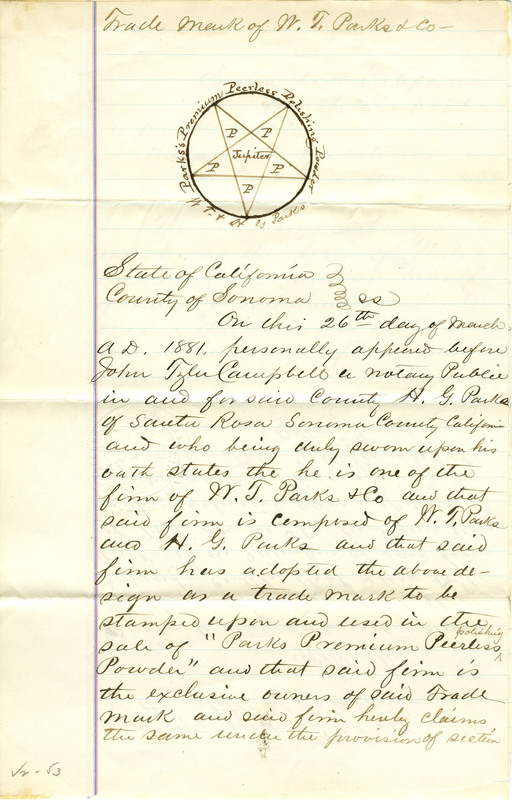 Trade Mark of W. T. Parks & Co-
Parks's Premium Peerless Polishing Powder
P P
Jupiter
P P
P
W. T. & H. G. Parks
State of California
County of Sonoma } ss
On this 26th day of March
A.D. 1881. personally appeared before
John Tyler Campbell a notary Public
in and for said County H. G. Parks
of Santa Rosa Sonoma County California
and who being duly sworn upon his
oath states the he is one of the
firm of W. T. Parks & Co and that
said firm is composed of W. T. Parks
and H. G. Parks and that said
firm has adopted the above de-
sign as a trade mark to be
stamped upon and used in the
sale of "Parks Premium Peerless polishing
Powder" and that said firm is
the exclusive owners of said Trade
Mark and said firm hereby claims
the same under the provision of section